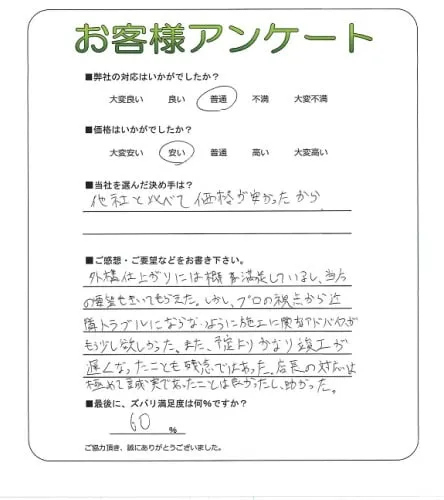 お客様アンケート
■弊社の対応はいかがでしたか?
大変良い 良い 普通 不満 大変不満
■価格はいかがでしたか?
大変安い 安い 普通 高い 大変高い
■当社を選んだ決め手は?
他社と比べて価格が安かったから
■ご感想・ご要望などをお書き下さい。
外構仕上がりには概ね満足しているし、当方
の要望もきいてもらえた。しかし、プロの視点から近
隣トラブルにならないように施工に関するアドバイスが
もう少し欲しかった。また、予定よりかなり竣工が
遅くなったことも残念ではあった。店長の対応は
極めて誠実であったことは良かったし、助かった。
■最後に、ズバリ満足度は何%ですか?
60 %
ご協力頂き、誠にありがとうございました。